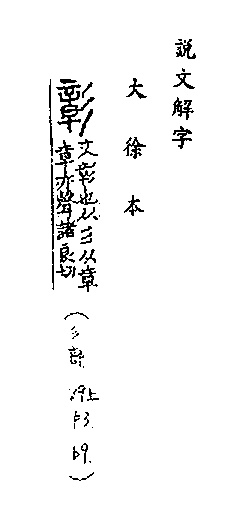 說文解字
大徐本
彰
文彰也从彡从章
章亦聲諸良切
（彡部 九上